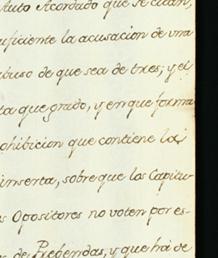 Auto Acordado que se citan,
suficiente la acusacion de una
abuso de que sea de tres; y el
ta que grado, y en que forma
ohibicion que contiene la
inserta, sobre que los Capitu-
s Opositores no voten por es-
de Prebendas, y que hà de